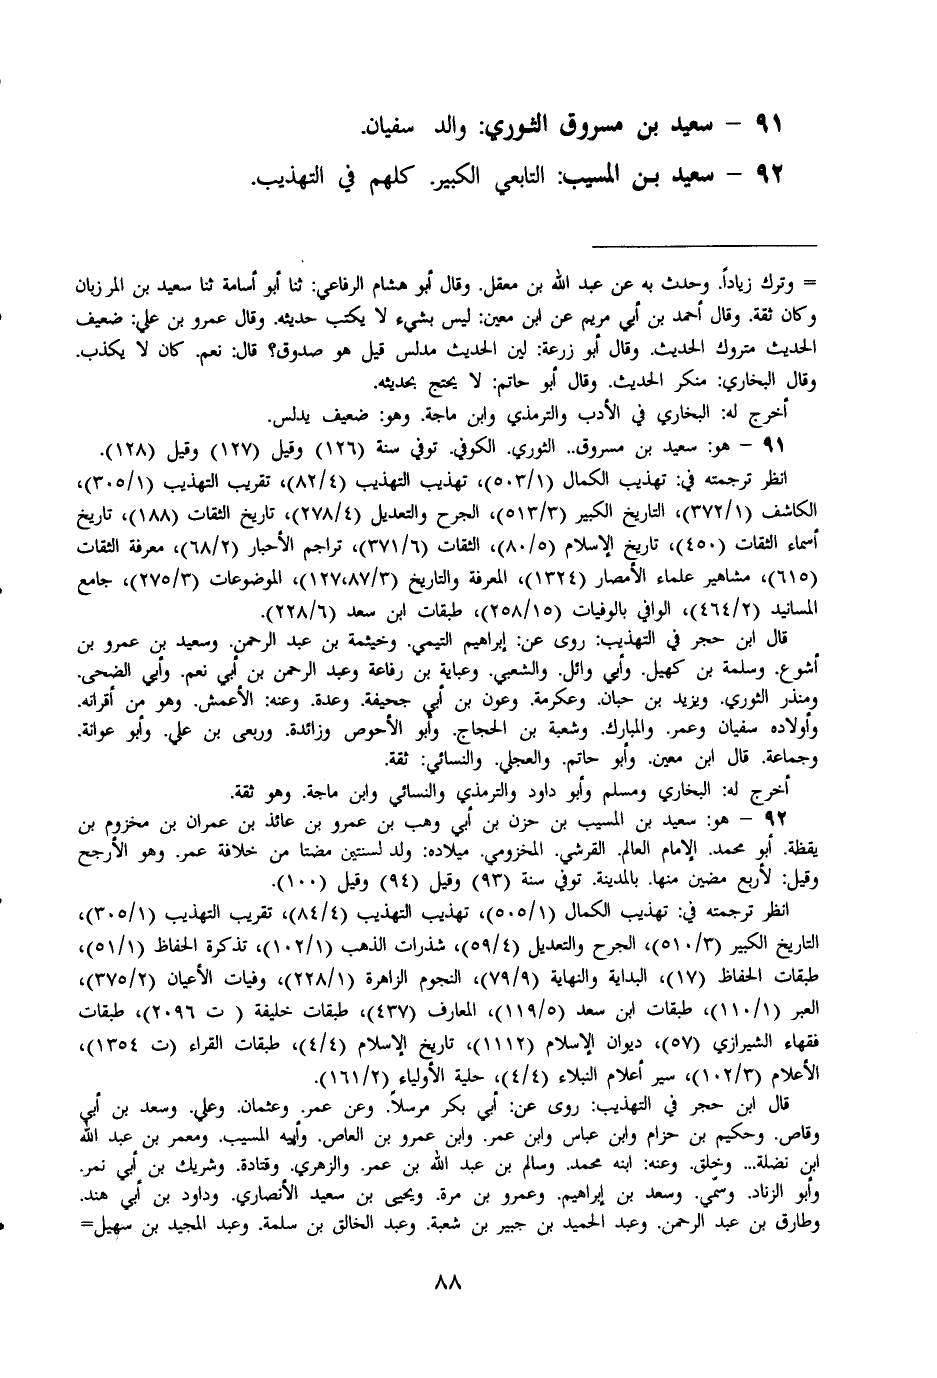 ٩١ – سعيد بن مسروق الثوري: والد سفيان.
٩٢ – سعيد بـن المسيب: التابعي الكبير. كلهم في التهذيب.
= وترك زياداً. وحدث به عن عبد الله بن معقل. وقال أبو هشام الرفاعي: ثنا أبو أسامة ثنا سعيد بن المرزبان
وكان ثقة. وقال أحمد بن أبي مريم عن ابن معين: ليس بشيء لا يكتب حديثه. وقال عمرو بن علي: ضعيف
الحديث متروك الحديث. وقال أبو زرعة: لين الحديث مدلس قيل هو صدوق؟ قال: نعم. كان لا يكذب.
وقال البخاري: منكر الحديث. وقال أبو حاتم: لا يحتج بحديثه.
أخرج له: البخاري في الأدب والترمذي وابن ماجة. وهو: ضعيف يدلس.
٩١ – هو: سعيد بن مسروق.. الثوري. الكوفي. توفي سنة (١٢٦) وقيل (١٢٧) وقيل (١٢٨).
انظر ترجمته في: تهذيب الكمال (٥٠٣/١)، تهذيب التهذيب (٨٢/٤)، تقريب التهذيب (٣٠٥/١)،
الكاشف (٣٧٢/١)، التاريخ الكبير (٥١٣/٣)، الجرح والتعديل (٢٧٨/٤)، تاريخ الثقات (١٨٨)، تاريخ
أسماء الثقات (٤٥٠)، تاريخ الإسلام (٨٠/٥)، الثقات (٣٧١/٦)، تراجم الأحبار (٦٨/٢)، معرفة الثقات
(٦١٥)، مشاهير علماء الأمصار (١٣٢٤)، المعرفة والتاريخ (١٢٧،٨٧/٣)، الموضوعات (٢٧٥/٣)، جامع
المسانيد (٤٦٤/٢)، الوافي بالوفيات (٢٥٨/١٥)، طبقات ابن سعد (٢٢٨/٦).
قال ابن حجر في التهذيب: روى عن: إبراهيم التيمي. وخيثمة بن عبد الرحمن. وسعيد بن عمرو بن
أشوع. وسلمة بن كهيل. وأبي وائل. والشعبي. وعباية بن رفاعة وعبد الرحمن بن أبي نعم. وأبي الضحى.
ومنذر الثوري. ويزيد بن حبان. وعكرمة. وعون بن أبي جحيفة. وعدة. وعنه: الأعمش. وهو من أقرانه.
وأولاده سفيان وعمر. والمبارك. وشعبة بن الحجاج. وأبو الأحوص وزائدة. وربعى بن علي. وأبو عوانة.
وجماعة. قال ابن معين. وأبو حاتم. والعجلي. والنسائي: ثقة.
أخرج له: البخاري ومسلم وأبو داود والترمذي والنسائي وابن ماجة. وهو ثقة.
٩٢ – هو: سعيد بن المسيب بن حزن بن أبي وهب بن عمرو بن عائذ بن عمران بن مخزوم بن
يقظة. أبو محمد. الإمام العالم. القرشي. المخزومي. ميلاده: ولد لسنتين مضتا من خلافة عمر. وهو الأرجح
وقيل: لأربع مضين منها. بالمدينة. توفي سنة (٩٣) وقيل (٩٤) وقيل (١٠٠).
انظر ترجمته في: تهذيب الكمال (٥٠٥/١)، تهذيب التهذيب (٨٤/٤)، تقريب التهذيب (٣٠٥/١)،
التاريخ الكبير (٥١٠/٣)، الجرح والتعديل (٥٩/٤)، شذرات الذهب (١٠٢/١)، تذكرة الحفاظ (٥١/١)،
طبقات الحفاظ (١٧)، البداية والنهاية (٧٩/٩)، النجوم الزاهرة (٢٢٨/١)، وفيات الأعيان (٣٧٥/٢)،
العبر (١١٠/١)، طبقات ابن سعد (١١٩/٥)، المعارف (٤٣٧)، طبقات خليفة ( ت ٢٠٩٦)، طبقات
فقهاء الشيرازي (٥٧)، ديوان الإسلام (١١١٢)، تاريخ الإسلام (٤/٤)، طبقات القراء (ت ١٣٥٤)،
الأعلام (١٠٢/٣)، سير أعلام النبلاء (٤/٤)، حلية الأولياء (١٦١/٢).
قال ابن حجر في التهذيب: روى عن: أبي بكر مرسلاً. وعن عمر. وعثمان. وعلي. وسعد بن أبي
وقاص. وحكيم بن حزام وابن عباس وابن عمر. وابن عمرو بن العاص. وأبيه المسيب. ومعمر بن عبد الله
ابن نضلة... وخلق. وعنه: ابنه محمد. وسالم بن عبد الله بن عمر. والزهري. وقتادة. وشريك بن أبي نمر.
وأبو الزناد. وسمّي. وسعد بن إبراهيم. وعمرو بن مرة. ويحيى بن سعيد الأنصاري. وداود بن أبي هند.
وطارق بن عبد الرحمن. وعبد الحميد بن جبير بن شعبة. وعبد الخالق بن سلمة. وعبد المجيد بن سهيل=
٨٨